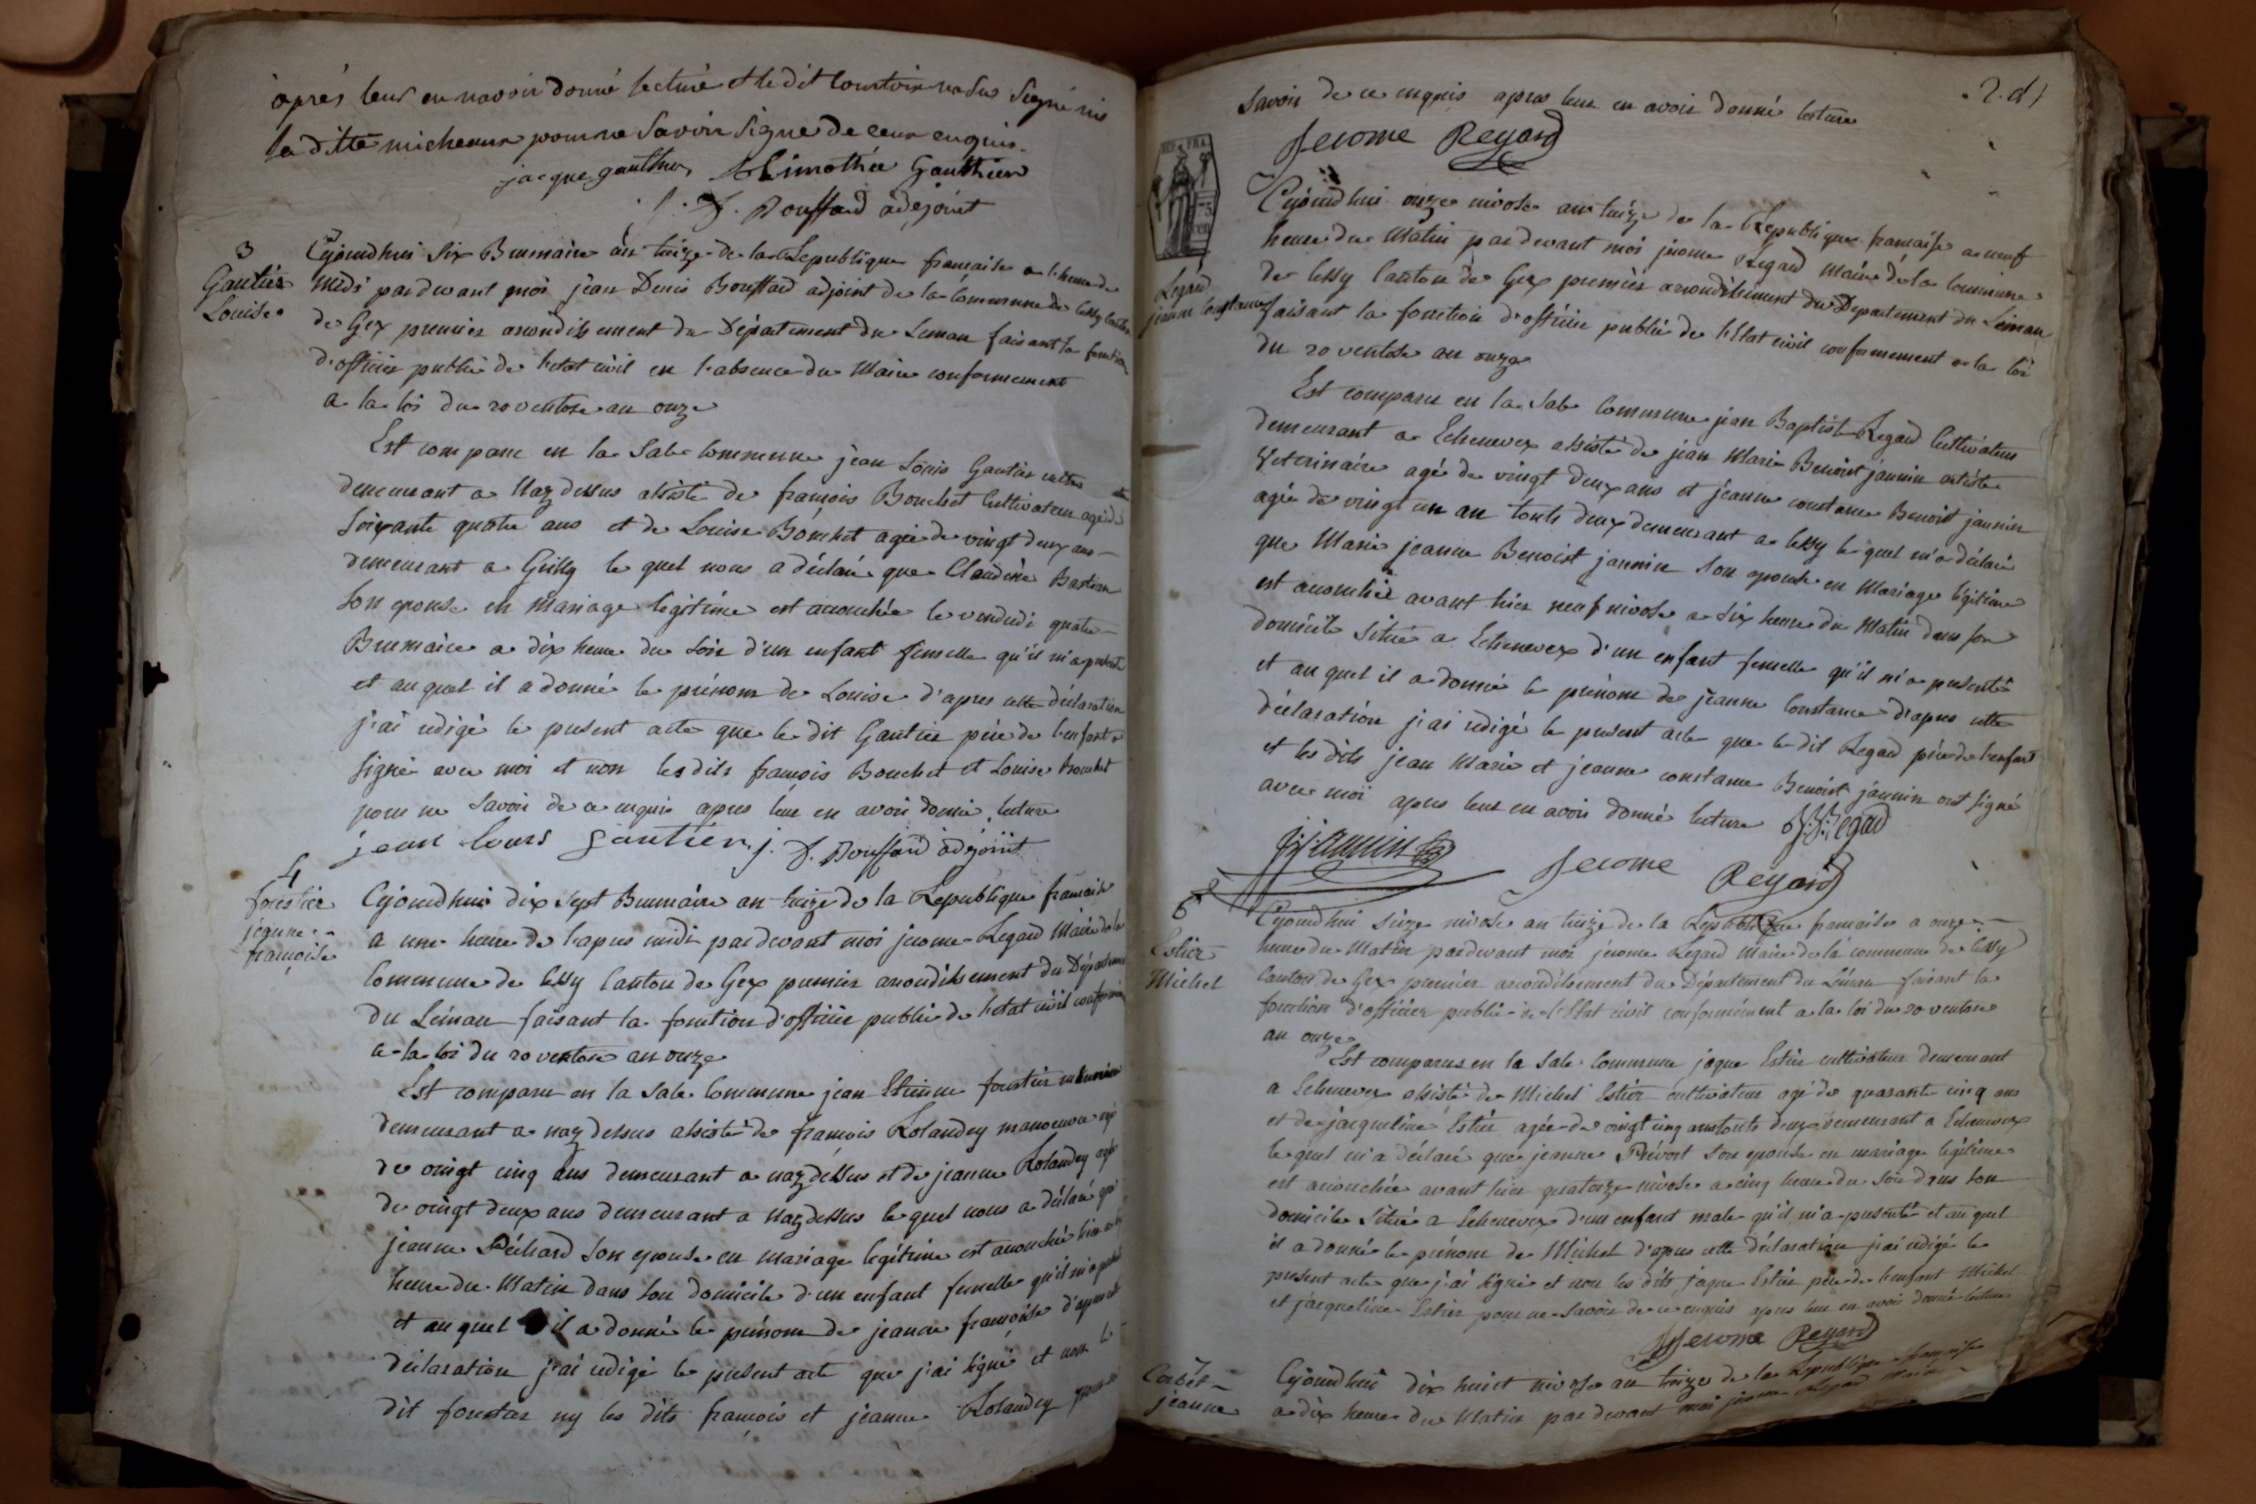 après leur en navoir donné lecture et le dit Courtois na su Signé nis
la ditte micheaux pour ne Savoir Signe de ceux enquis.
jacque gauthier thimothée Gauthier
j. D. Bouffard adejoint
3
Gautier
Louise.
Cejourdhui Six Brumaire an treize de la Republique francaise a lheure de
midi pardevant moi jean Denis Bouffard adjoint de la Commune de Cessy Canton
de Gex premier arrondissement du Département du Leman faisant la fonction
d'officier public de letat civil en l'absence du Maire conformement
a la loi du 20 ventose an onze
Est comparu en la Sale Commune jean Louis Gautier
demeurant a Naz dessus assisté de françois Bouchet Cultivateur agé de
Soixante quatre ans et de Louise Bouchet agée de vingt deux ans
demeurant a Grilly le quel nous a déclaré que Claudine Bastian
Son epouse en Mariage legitime est acouchée le vendredi quatre
Brumaire a dix heure du Soir d'un enfant femelle qu'il m'a presenté
et au quel il a donné le prénom de Louise d'apres cette déclaration
j'ai redigé le present acte que le dit Gautier pere de l'enfant a
Signé avec moi et non les dits françois Bouchet et Louise Bouchet
pour ne Savoir de ce enquis apres leur en avoir donné lecture
jean louis gautier j. D. Bouffard adejoint
4
forestier
jeanne
françoise
Cejourdhui dix Sept Brumaire an treize de la Republique francaise
a une heure de l'apres midi pardevant moi jerome Regard Maire de la
Commune de Cessy Canton de Gex premier arrondissement du Départem
du Léman faisant la fonction d'officier public de letat civil conformem
a la loi du 20 ventose an onze
Est comparu en la Sale Commune jean Etienne
demeurant a naz dessus assisté de françois Rolandey manoeuvre agé
de vingt cinq ans demeurant a naz dessus et de jeanne Rolandey agée
de vingt deux ans demeurant a Naz dessus le quel nous a déclaré que
jeanne Son epouse en mariage legitime est acouchée hier a
heure du Matin dans Son domicile d'un enfant femelle qu'il m'a presenté
et au quel il a donné le prénom de jeanne françoise d'apres cette
déclaration j'ai redigé le present acte que j'ai Signé et non le
dit ny les dits françois et jeanne Rolandey pour ne
2. d/
Savoir de ce enquis apres leur en avoir donné lecture
Jerome Regard
REP. FRA.
75
CEN
Regard
jeanne Constance
Cejourdhui onze nivose an treize de la Republique francaise a neuf
heure du Matin pardevant moi jerome Regard Maire de la Commune
de Cessy Canton de Gex premier arrondissement du Departement du Léman
faisant la fonction d'officier public de l'Etat civil conformement a la loi
du 20 ventose an onze
Est comparu en la Sale Commune jean Baptiste Regard Cultivateur
demeurant a Echenevex assisté de jean Marie Benoist jannin artiste
Veterinaire agé de vingt deux ans et jeanne constance Benoist jannin
agée de vingt un an touts deux demeurant a Cessy le quel m'a déclaré
que Marie jeanne Benoist jannin Son epouse en Mariage légitime
est acouchée avant hier neuf nivose a Six heure du Matin dans Son
domicile Situé a Echenevex d'un enfant femelle qu'il m'a presenté
et au quel il a donné le prénom de jeanne Constance d'apres cette
déclaration j'ai redigé le present acte que le dit Regard père de l'enfant
et les dits jean Marie et jeanne constance Benoist jannin ont Signé
avec moi apres leur en avoir donné lecture J.B. Regard
jannin Jerome Regard
6
Estier
Michel
Cejourdhui Seize nivose an treize de la Republique francaise a onze
heure du Matin pardevant moi jerome Regard Maire de la commune de Cessy
Canton de Gex premier arrondissement du Département du Léman faisant la
fonction d'officier public de l'Etat civil conformément a la loi du 20 ventose
an onze
Est comparus en la Sale Commune jaque Estier cultivateur demeurant
a Echenevex assisté de Michel Estier cultivateur agé de quarante cinq ans
et de jacqueline Estier agée de vingt cinq ans touts deux demeurant a Echenevex
le quel m'a déclaré que jeanne Prévost Son epouse en mariage légitime
est acouchée avant hier quatorze nivose a cinq heure du Soir dans Son
domicile Situé a Echenevex d'un enfant male qu'il m'a presenté et au quel
il a donné le prénom de Michel d'apres cette déclaration j'ai redigé le
present acte que j'ai Signé et non les dits jaque Estier père de l'enfant Michel
et jacqueline Estier pour ne Savoir de ce enquis apres leur en avoir donné lecture
Jerome Regard
7
jeanne
Cejourdhui dix huit nivose an treize de la Republique françaisse
a dix heure du Matin pardevant moi jerome Regard Maire